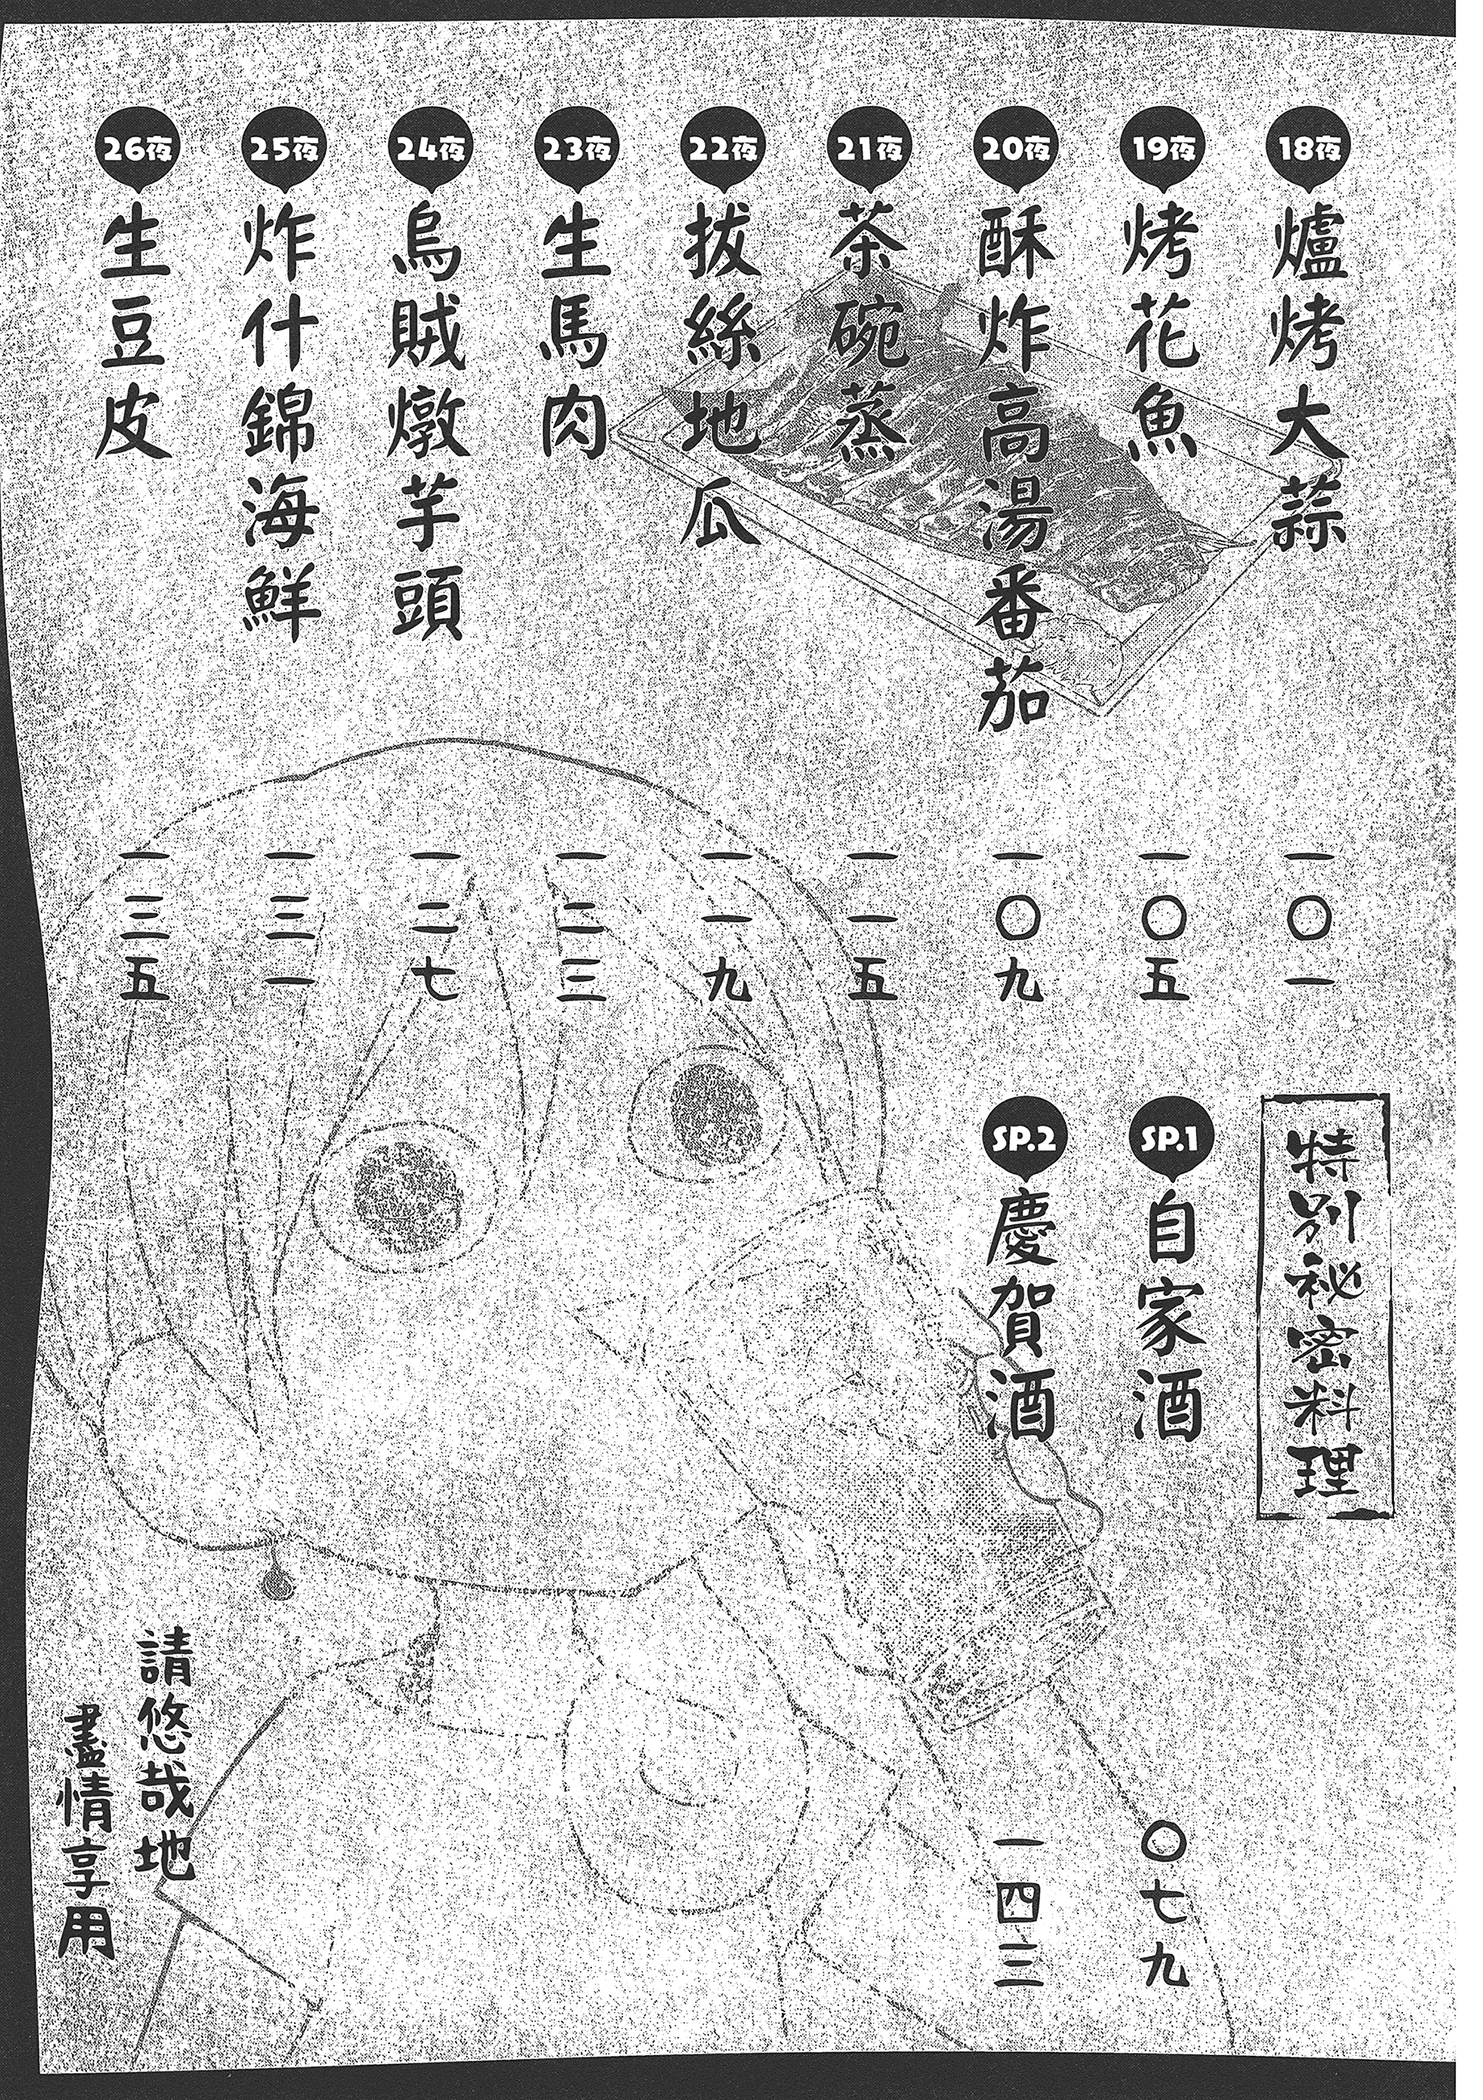 18夜 爐烤大蒜 一〇一
19夜 烤花魚 一〇五
20夜 酥炸高湯番茄 一〇九
21夜 茶碗蒸 一一五
22夜 拔絲地瓜 一一九
23夜 生馬肉 一二三
24夜 烏賊燉芋頭 一二七
25夜 炸什錦海鮮 一三一
26夜 生豆皮 一三五
特別祕密料理
SP.1 自家酒 〇七九
SP.2 慶賀酒 一四三
請悠哉地
盡情享用